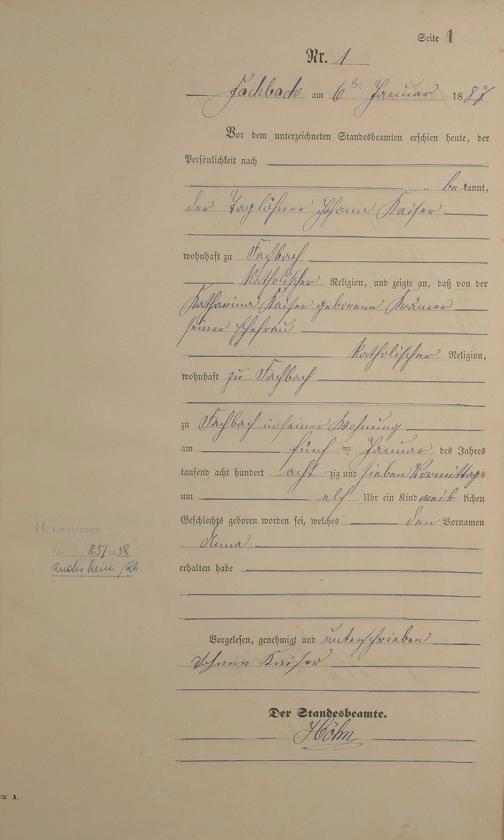 Seite 1
Nr. 1
Fachbach am 6ten Januar 1887
Vor dem unterzeichneten Standesbeamten erschien heute, der
Persönlichkeit nach
bekannt,
der Taglöhner Johann Kaiser
wohnhaft zu Fachbach
katholischer Religion, und zeigte an, daß von der
Katharina Kaiser geborene Krämer
seiner Ehefrau
katholischer Religion,
wohnhaft zu Fachbach
zu Fachbach in seiner Wohnung
am fünften Januar des Jahres
tausend acht hundert acht zig und sieben Vormittags
um elf Uhr ein Kind weib lichen
Geschlechts geboren worden sei, welches den Vornamen
Anna
H. Gestorben
Nr. 85/1958
erhalten habe
Vorgelesen, genehmigt und unterschrieben
Johann Kaiser
Der Standesbeamte.
Höhn
A.